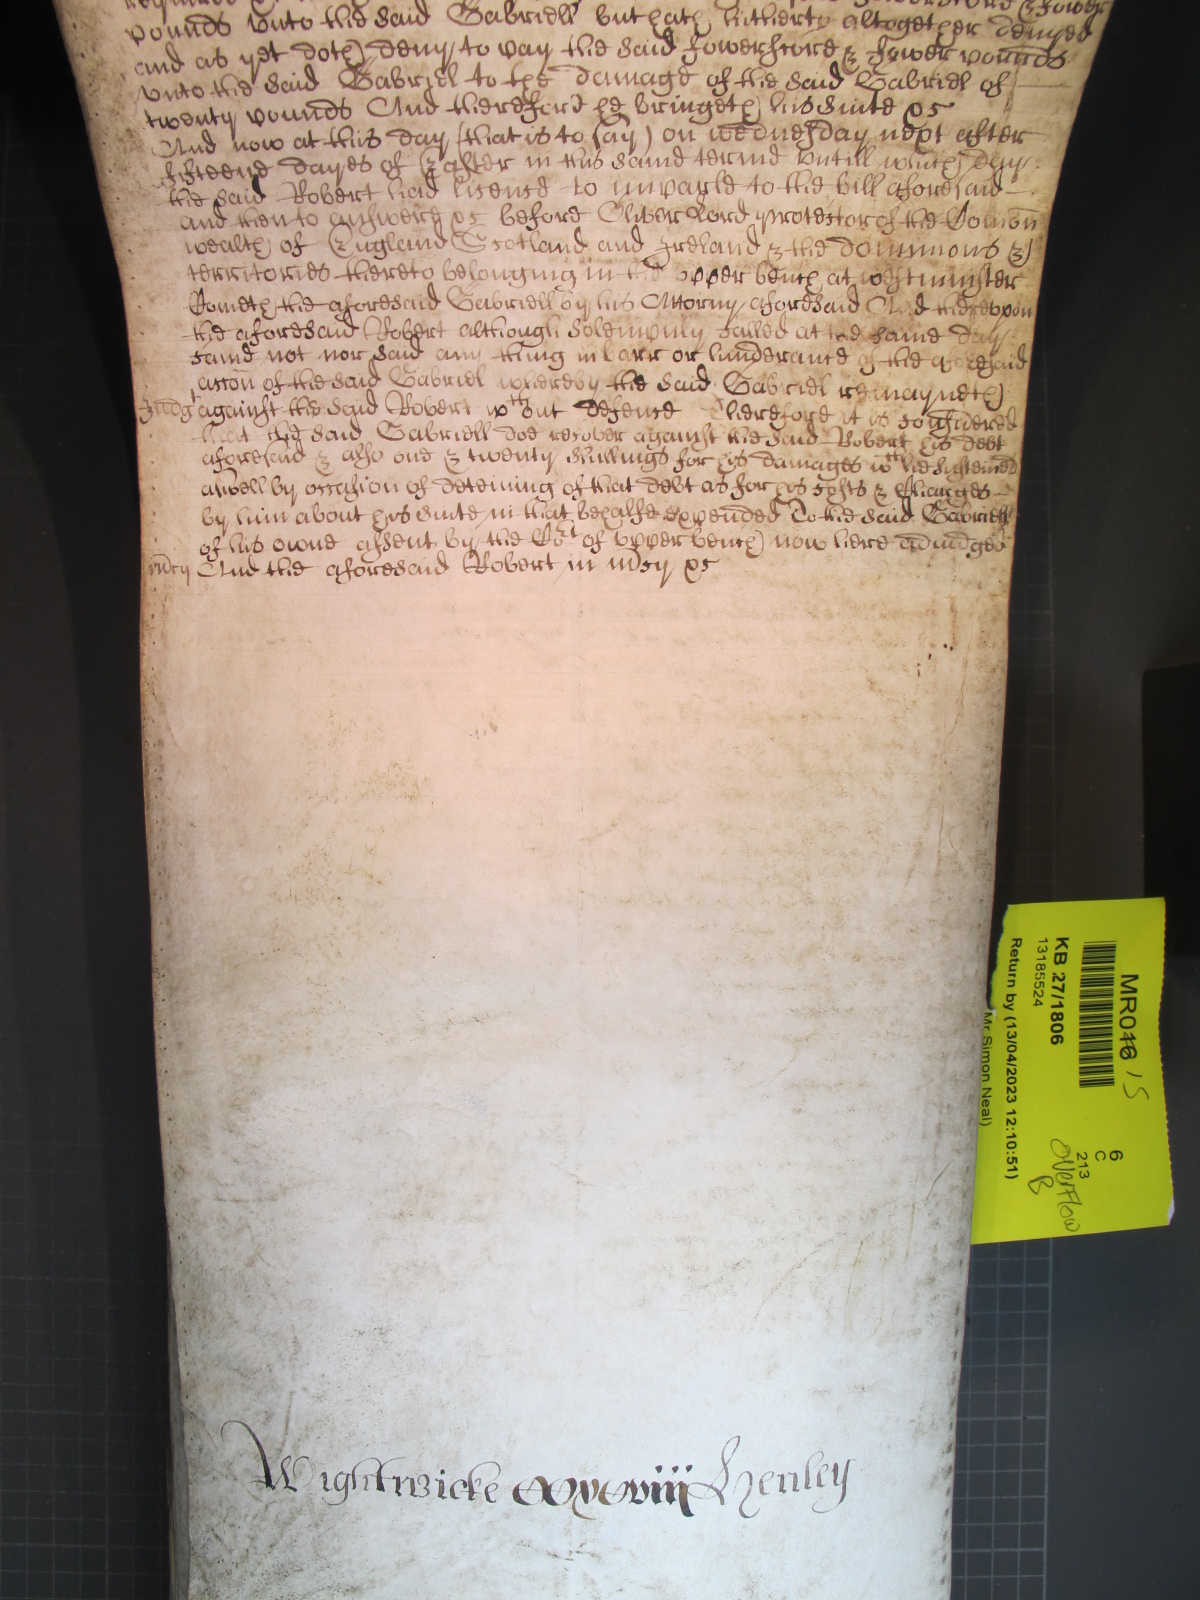 pounds unto the said Gabriell but hath hitherto altogether denyed
and as yet doth deny to pay the said fowerscore & fower pounds
unto the said Gabriel to the damage of the said Gabriel of
twenty pounds And therefore he bringeth his suite &c
And now at this day (that is to say) on wednesday next after
fifteene dayes of Easter in this same terme untill which day
the said Robert had licence to imparle to the bill aforesaid
and then to answere &c before Oliver Lord protector of the Comon
wealth of England Scotland and Ireland & the dominions &
territories thereto belonging in the upper bench at westminster
Cometh the aforesaid Gabriell by his Attorny aforesaid And thereupon
the aforesaid Robert although solemnly called at the same day
came not nor said any thing in barr or hinderance of the aforesaid
accon of the said Gabriel whereby the said Gabriel remayneth
Judgt against the said Robert wthout defence Therefore it is considered
that the said Gabriell doe recover against the said Robert his debt
aforesaid & also one & twenty shillings for his damages wch he susteined
aswell by occasion of deteining of that debt as for his costs & Charges
by him about his suite in that behalfe expended To the said Gabriell
of his owne assent by the Cort of upper bench now here adiudged
mcy And the aforesaid Robert in mcy &c
Wightwicke Henley
MR046 15
KB 27/1806
13185524
Return by (13/04/2023 12:10:51)
Mr Simon Neal)
6
C
213
Overflow
B